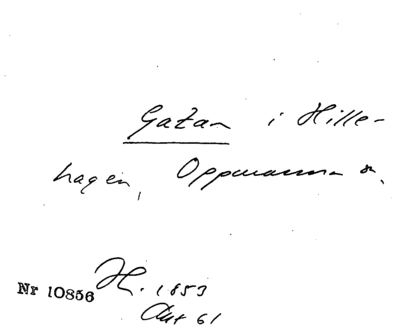 Gatan i Hille-
hagen, Oppmanna sn.
H. 1853
Nr 10856
Akt 61